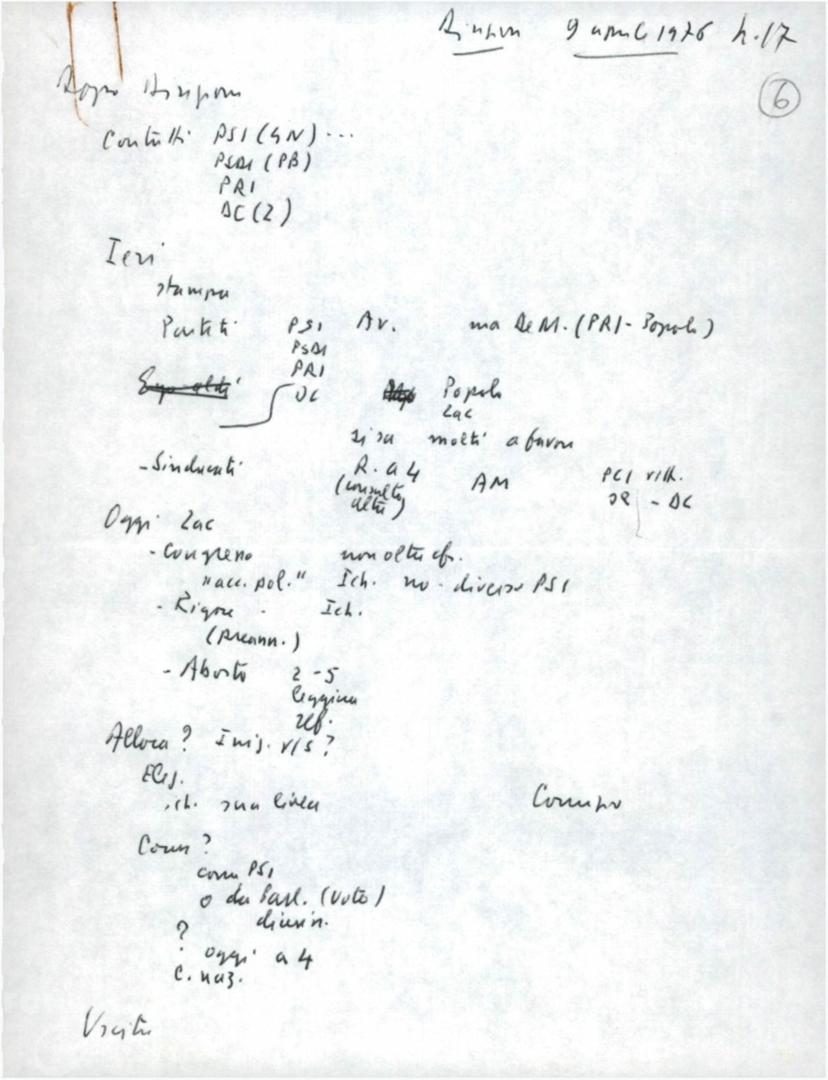 9 aprile 1976 h. 17
6
Dopo
Contatti PSI (4N) ...
PSDI (PB)
PRI
DC (Z)
Ieri
stampa
Partiti PSI Av. ma De M. (PRI - Popolo)
PSDI
PRI
DC Popolo
Zac
si sa molti a favore
- Sindacati R. a 4 AM PCI
(consulto - DC
altri)
Oggi Zac
- Congresso non oltre
"acc. pol." Ich. no - diverso PSI
- Rigore - Ich.
(Preann.)
- Aborto 2 - 5
leggina
ref.
Allora? Iniz. v/s?
Elez.
ich. sua linea
Com?
com PSI
o da Parl. (voto)
?
oggi a 4
C. naz.
Uscita